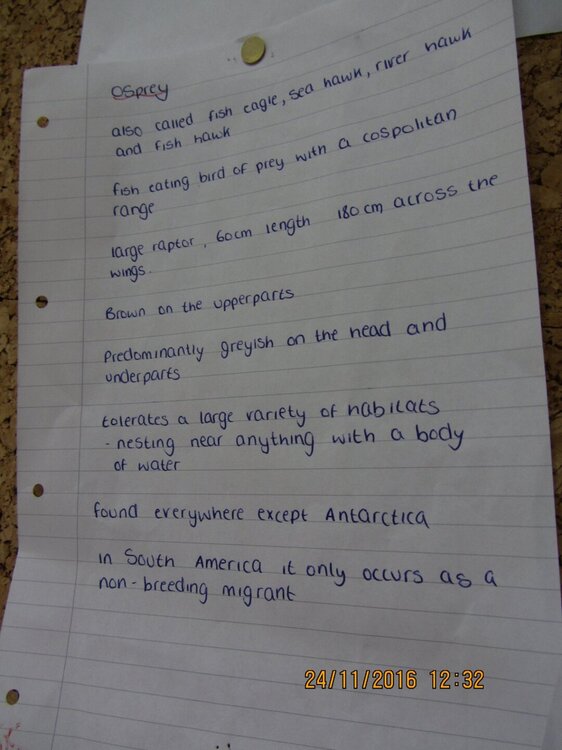 Osprey
also called fish eagle, sea hawk, river hawk
and fish hawk
fish eating bird of prey with a cospolitan
range
large raptor, 60cm length 180 cm across the
wings.
Brown on the upperparts
Predominantly greyish on the head and
underparts
tolerates a large variety of habitats
- nesting near anything with a body
of water
found everywhere except Antarctica
in South America it only occurs as a
non-breeding migrant
24/11/2016 12:32